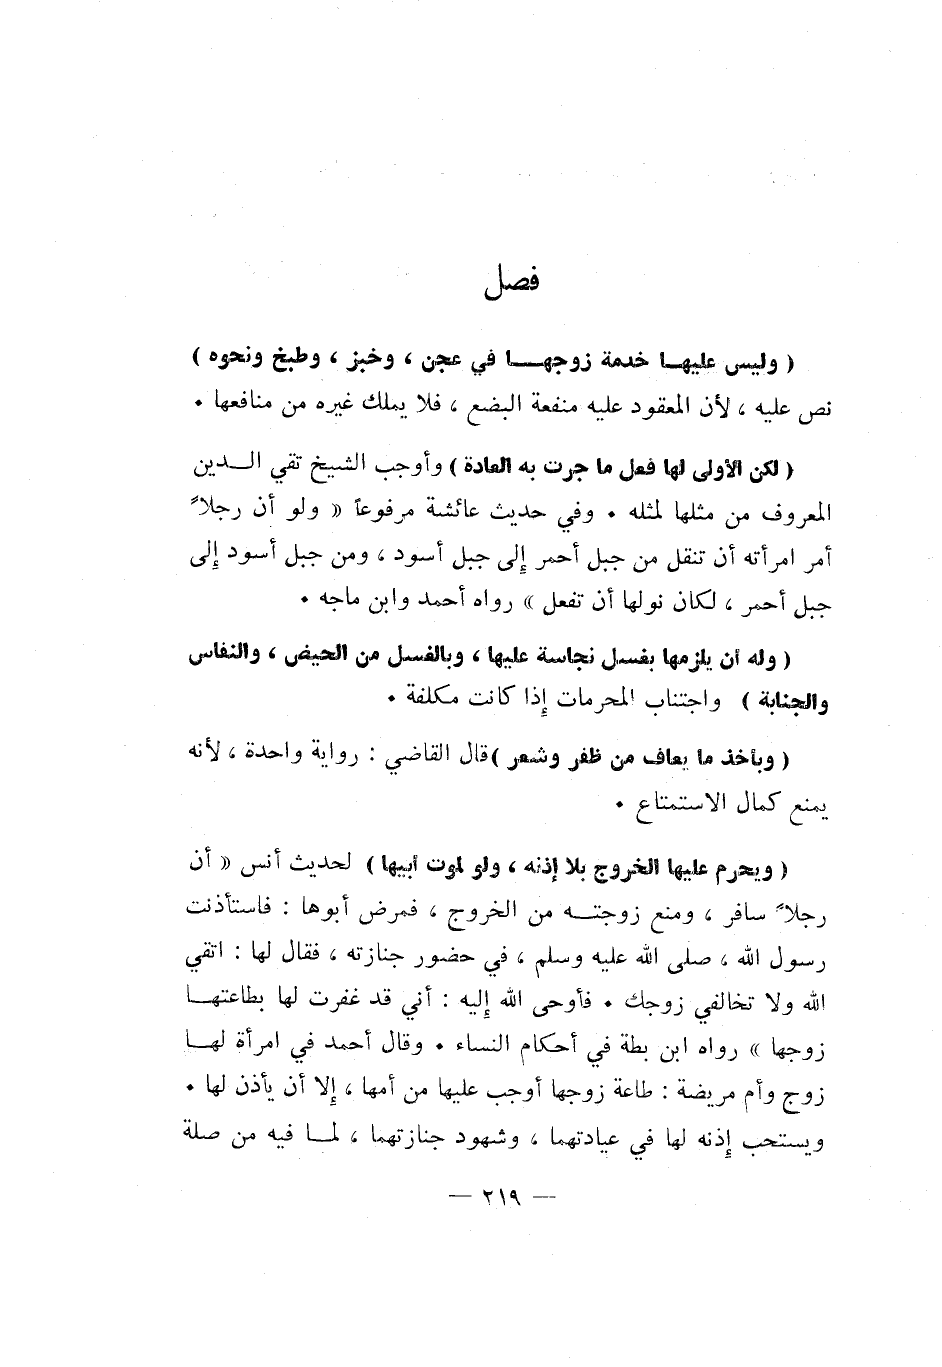 فصل
( وليس عليهــا خدمة زوجهــــا في عجن ، وخبز ، وطبخ ونحوه )
نص عليه ، لأن المعقود عليه منفعة البضع ، فلا يملك غيره من منافعها .
( لكن الأولى لها فعل ما جرت به العادة ) وأوجب الشيخ تقي الــدين
المعروف من مثلها لمثله . وفي حديث عائشة مرفوعاً « ولو أن رجلاً
أمر امرأته أن تنقل من جبل أحمر إلى جبل أسود ، ومن جبل أسود إلى
جبل أحمر ، لكان نولها أن تفعل » رواه أحمد وابن ماجه .
( وله أن يلزمها بغسل نجاسة عليها ، وبالغسل من الحيض ، والنفاس
والجنابة ) واجتناب المحرمات إذا كانت مكلفة .
( وبأخذ ما يعاف من ظفر وشعر ) قال القاضي : رواية واحدة ، لأنه
يمنع كمال الاستمتاع .
( ويحرم عليها الخروج بلا إذنه ، ولو لموت أبيها ) لحديث أنس « أن
رجلاً سافر ، ومنع زوجتــه من الخروج ، فمرض أبوها : فاستأذنت
رسول الله ، صلى الله عليه وسلم ، في حضور جنازته ، فقال لها : اتقي
الله ولا تخالفي زوجك . فأوحى الله إليه : أني قد غفرت لها بطاعتهــا
زوجها » رواه ابن بطة في أحكام النساء . وقال أحمد في امرأة لهــا
زوج وأم مريضة : طاعة زوجها أوجب عليها من أمها ، إلا أن يأذن لها .
ويستحب إذنه لها في عيادتهما ، وشهود جنازتهما ، لمــا فيه من صلة
— ٢١٩ —